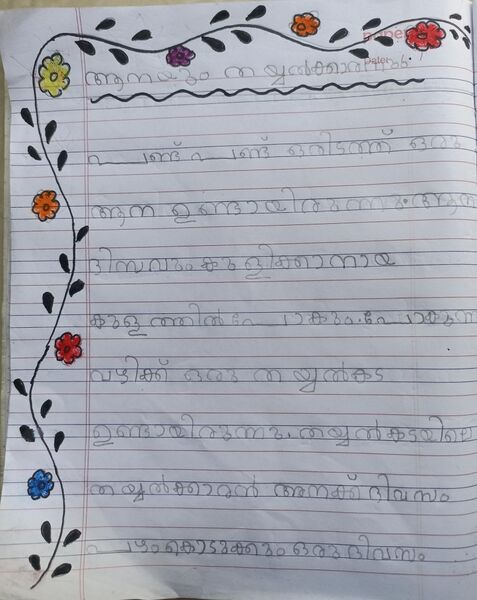 ആനയും തയ്യൽക്കാരനും
പണ്ട് പണ്ട് ഒരിടത്ത് ഒരു
ആന ഉണ്ടായിരുന്നു. ആന
ദിസവും കുളിക്കാനായ
കുളത്തിൽ പോകും. പോകുന്ന
വഴിക്ക് ഒരു തയ്യൽകട
ഉണ്ടായിരുന്നു. തയ്യൽകടയിലെ
തയ്യൽക്കാരൻ ആനക്ക് ദിവസം
പഴം കൊടുക്കും ഒരു ദിവസം